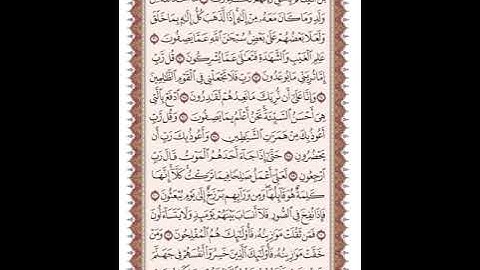 وَلَدٍ وَمَا كَانَ مَعَهُ مِنْ إِلَٰهٍ إِذًا لَّذَهَبَ كُلُّ إِلَٰهٍ بِمَا خَلَقَ
وَلَعَلَا بَعْضُهُمْ عَلَىٰ بَعْضٍ سُبْحَٰنَ ٱللَّهِ عَمَّا يَصِفُونَ
عَٰلِمِ ٱلْغَيْبِ وَٱلشَّهَٰدَةِ فَتَعَٰلَىٰ عَمَّا يُشْرِكُونَ قُل رَّبِّ
إِمَّا تُرِيَنِّي مَا يُوعَدُونَ رَبِّ فَلَا تَجْعَلْنِي فِي ٱلْقَوْمِ ٱلظَّٰلِمِينَ
وَإِنَّا عَلَىٰٓ أَن نُّرِيَكَ مَا نَعِدُهُمْ لَقَٰدِرُونَ ٱدْفَعْ بِٱلَّتِي
هِيَ أَحْسَنُ ٱلسَّيِّئَةَ نَحْنُ أَعْلَمُ بِمَا يَصِفُونَ وَقُل رَّبِّ
أَعُوذُ بِكَ مِنْ هَمَزَٰتِ ٱلشَّيَٰطِينِ وَأَعُوذُ بِكَ رَبِّ أَن
يَحْضُرُونِ حَتَّىٰٓ إِذَا جَآءَ أَحَدَهُمُ ٱلْمَوْتُ قَالَ رَبِّ
ٱرْجِعُونِ لَعَلِّيٓ أَعْمَلُ صَٰلِحًا فِيمَا تَرَكْتُ كَلَّآ إِنَّهَا
كَلِمَةٌ هُوَ قَآئِلُهَا وَمِن وَرَآئِهِم بَرْزَخٌ إِلَىٰ يَوْمِ يُبْعَثُونَ
فَإِذَا نُفِخَ فِي ٱلصُّورِ فَلَآ أَنسَابَ بَيْنَهُمْ يَوْمَئِذٍ وَلَا يَتَسَآءَلُونَ
فَمَن ثَقُلَتْ مَوَٰزِينُهُۥ فَأُو۟لَٰٓئِكَ هُمُ ٱلْمُفْلِحُونَ وَمَنْ
خَفَّتْ مَوَٰزِينُهُۥ فَأُو۟لَٰٓئِكَ ٱلَّذِينَ خَسِرُوٓا۟ أَنفُسَهُمْ فِي جَهَنَّمَ